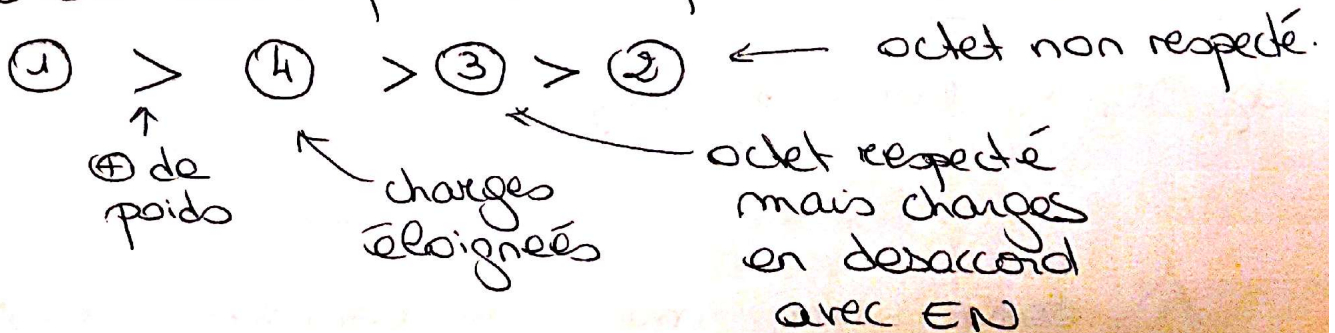 ① > ④ > ③ > ② ← octet non respecté.
⊕ de
poids
charges
éloigneés
octet respecté
mais charges
en desaccord
avec EN